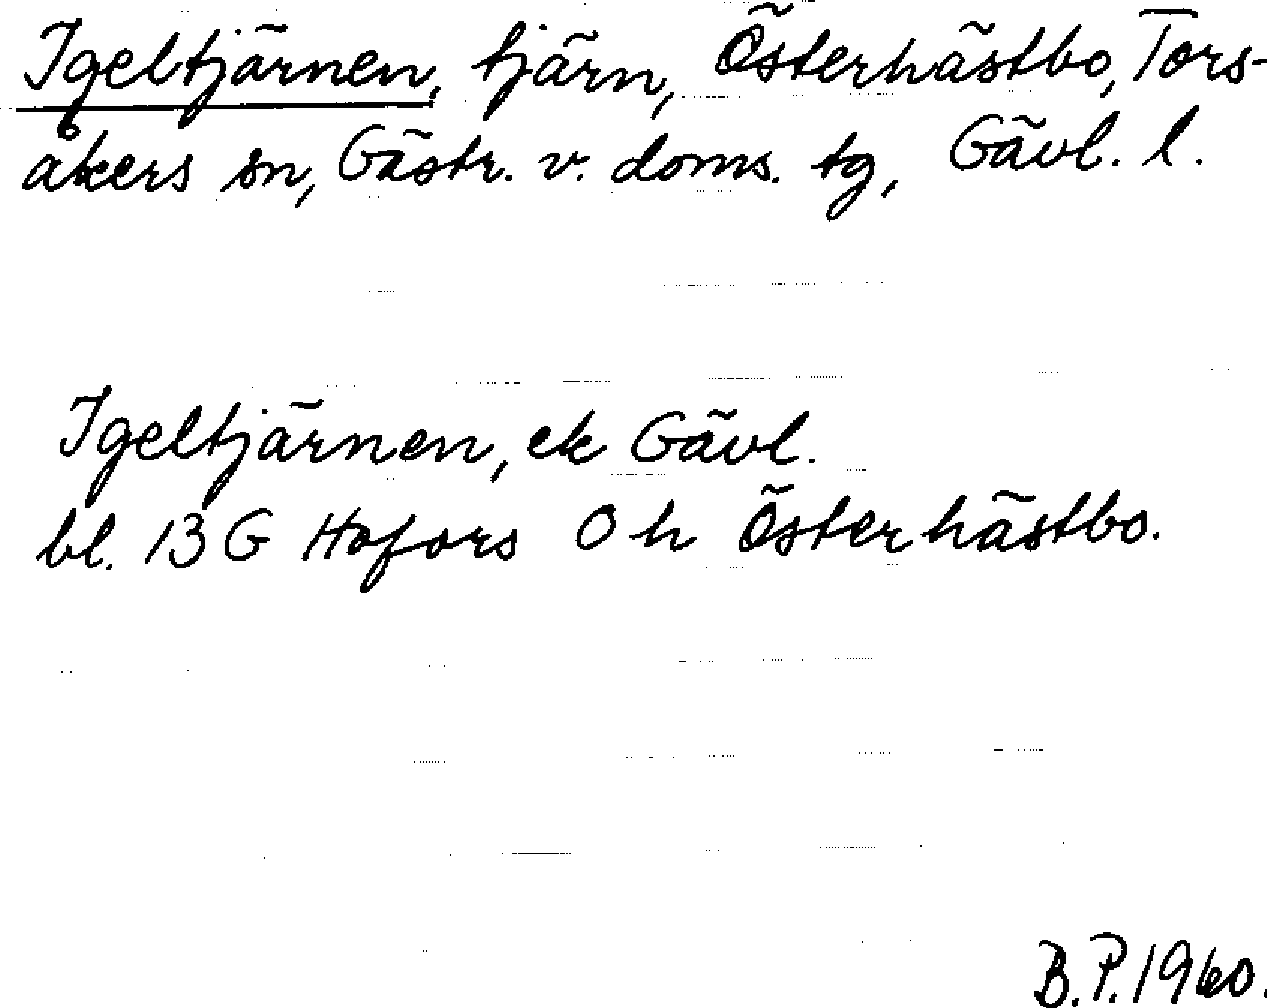 Igeltjärnen, tjärn, Österhästbo, Tors-
åkers sn, Gästr. v. doms. tg, Gävl. l.
Igeltjärnen, ek Gävl.
bl. 13 G Hofors 0 h Österhästbo.
B.P. 1960.